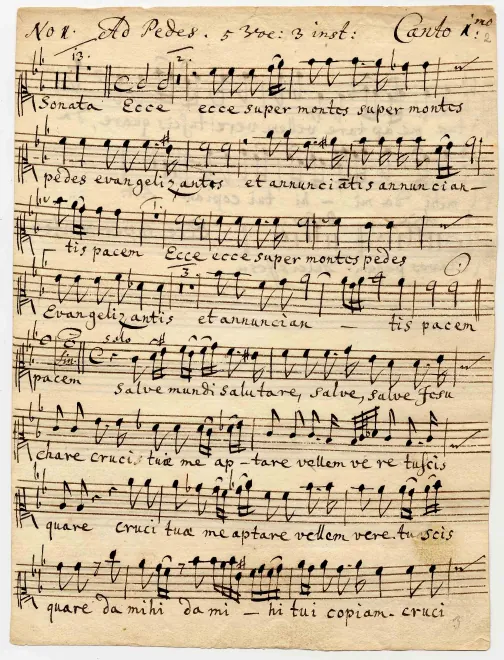 No 1. Ad Pedes. 5 Voc: 3 inst: Canto 1.mo
13. 2.
Sonata Ecce ecce super montes super montes
pedes evangelizantis et annunciatis annuncian–
1.
tis pacem Ecce ecce super montes pedes
3.
Evangelizantis et annuncian – tis pacem
solo
pacem Salve mundi salutare, salve, salve Jesu
chare crucis tuæ me ap–tare vellem vere tu scis
quare cruci tuæ me aptare vellem vere tu scis
quare da mihi da mi – hi tui copiam. cruci